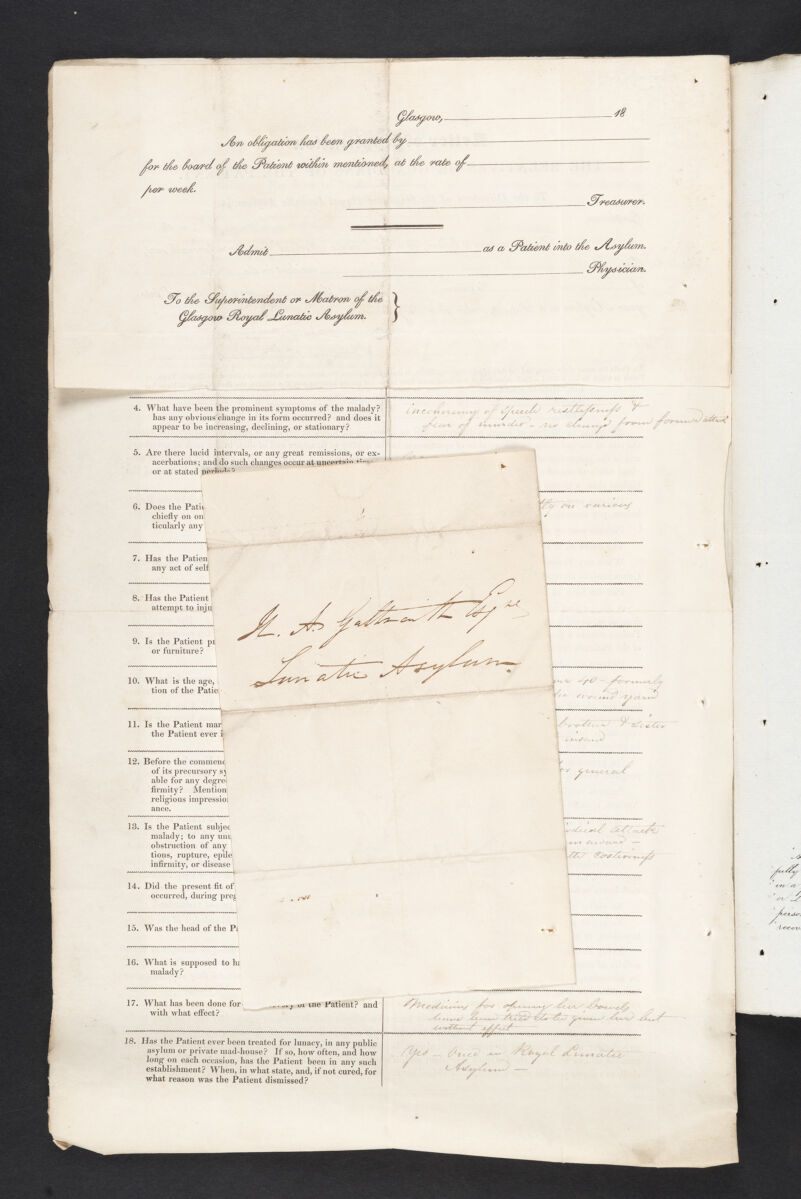 Glasgow, 18
An obligation has been granted by
for the board of the Patient within mentioned, at the rate of
per week.
Treasurer.
Admit as a Patient into the Asylum.
Physician.
To the Superintendent or Matron of the
Glasgow Royal Lunatic Asylum. }
4. What have been the prominent symptoms of the malady?
has any obvious change in its form occurred? and does it
appear to be increasing, declining, or stationary?
incoherency of speech restlessness &
fear of murder - no change from former attack
5. Are there lucid intervals, or any great remissions, or ex-
acerbations; and do such changes occur at uncertain
or at stated periods?
6. Does the Patie
chiefly on on
ticularly any
on various
7. Has the Patien
any act of self
8. Has the Patient
attempt to inju
9. Is the Patient pr
or furniture?
10. What is the age,
tion of the Patie
40 - formerly
wound yarn
11. Is the Patient mar
the Patient ever i
brother & sister
insane
12. Before the commenc
of its precursory sy
able for any degre
firmity? Mention
religious impressio
ance.
general
13. Is the Patient subjec
malady; to any unu
obstruction of any
tions, rupture, epile
infirmity, or disease
attacks
costiveness
14. Did the present fit of
occurred, during preg
15. Was the head of the Pa
16. What is supposed to ha
malady?
17. What has been done for of the Patient? and
with what effect?
Medicines for opening her bowels
have been tried to be given her but
without effect
18. Has the Patient ever been treated for lunacy, in any public
asylum or private mad-house? If so, how often, and how
long on each occasion, has the Patient been in any such
establishment? When, in what state, and, if not cured, for
what reason was the Patient dismissed?
Yes - Once in Royal Lunatic
Asylum -
A. Galbraith Esqre
Lunatic Asylum
fully
in a
person